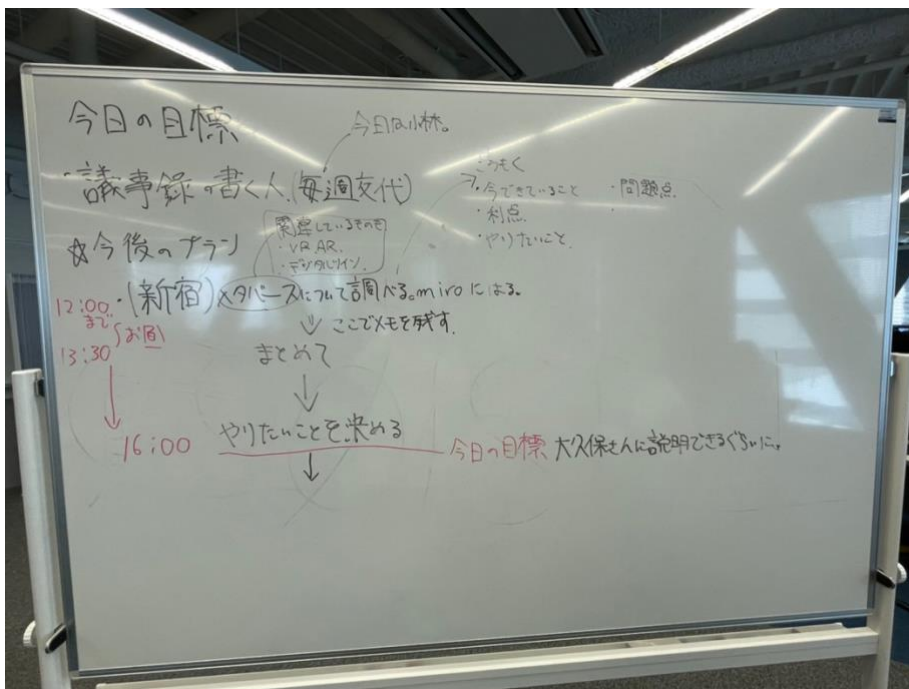 今日の目標
今日は小林。
・議事録の書く人(毎週交代)
こうもく
・今できていること
・問題点
・利点
・
・やりたいこと
☆今後のプラン
関連しているものも
・VR AR
・デジタルツイン
12:00まで
・(新宿)メタバースについて調べる。miroにはる。
お昼
ここでメモを残す.
13:30
まとめて
16:00
やりたいことを決める
今日の目標 大久保さんに説明できるぐらいに。